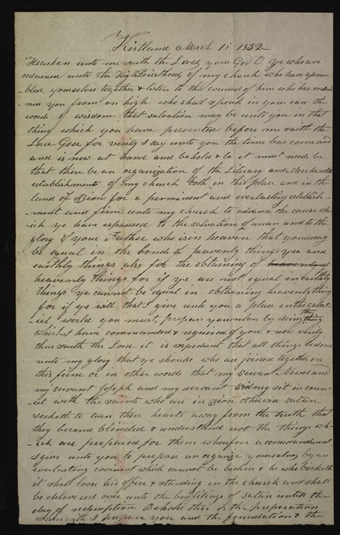 Kirtland March 1st 1832
Hearken unto me saith the Lord your God O ye who are
ordained unto the High Priesthood of my church who have assem
bled yourselves together & listen to the council of him who has ordai
ned you from on high who shall speak in your ears the
words of wisdom that salvation may be unto you in that
thing which you have presented before me saith the
Lord God for verily I say unto you the time has come and
is now at hand and behold & lo it must needs be
that there be an organization of the Literary and Merchantile
establishments of my church both in this place and in the
land of Zion for a perminent and everlasting establish-
ment and firm unto my church to advance the cause wh
ich ye have espoused to the salvation of man and to the
glory of your Father who is in heaven that you may
be equal in the bonds of heavenly things yea and
earthly things also for the obtaining of
heavenly things for if ye are not equal in earthly
things ye cannot be equal in obtaining heavenly things
for if ye will that I give unto you a place in the celest
ial world you must prepare yourselves by doing the things
which I have commanded & required of you & now verily
thus saith the Lord it is expedient that all things be done
unto my glory that ye should who are joined together in
this firm or in other words that my servant Newel and
my servant Joseph and my servant Sidney sit in coun
cil with the saints who are in Zion otherwise satan
seeketh to turn their hearts away from the truth that
they become blinded & understand not the things wh
ich are prepared for them wherefore a commandment
I give unto you to prepare an organize yourselves by an
everlasting covenant which cannot be broken & he who breaketh
it shall lose his office & standing in the church and shall
be delivered over unto the buffetings of satan until the
day of redemption Behold this is the preparation
wherewith I prepare you and the foundation & the